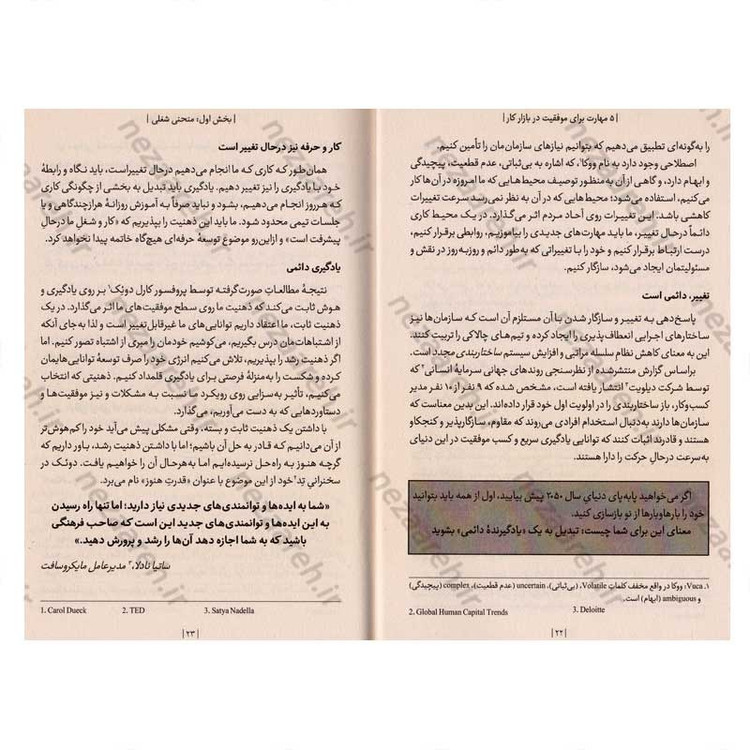 | ۵ مهارت برای موفقیت در بازار کار |
را به‌گونه‌ای تطبیق می‌دهیم که بتوانیم نیازهای سازمان‌مان را تأمین کنیم.
اصطلاحی وجود دارد به نام ووکا۱، که اشاره به بی‌ثباتی، عدم قطعیت، پیچیدگی
و ابهام دارد، و گاهی از آن به‌منظور توصیف محیط‌هایی که ما امروزه در آن‌ها کار
می‌کنیم، استفاده می‌شود؛ محیط‌هایی که در آن به نظر نمی‌رسد سرعت تغییرات
کاهشی باشد. این تغییرات روی آحاد مردم اثر می‌گذارد. در یک محیط کاری
دائماً درحال تغییر، ما باید مهارت‌های جدیدی را بیاموزیم، روابطی برقرار کنیم،
درست ارتباط برقرار کنیم و خود را با تغییراتی که به‌طور دائم و روزبه‌روز در نقش و
مسئولیتمان ایجاد می‌شود، سازگار کنیم.
تغییر، دائمی است
پاسخ‌دهی به تغییر و سازگار شدن با آن مستلزم آن است که سازمان‌ها نیز
ساختارهای اجرایی انعطاف‌پذیری را ایجاد کرده و تیم‌های چالاکی را تربیت کنند.
این به معنای کاهش نظام سلسله مراتبی و افزایش سیستم ساختاربندی مجدد است.
براساس گزارش منتشرشده از نظرسنجی روندهای جهانی سرمایهٔ انسانی۲ که
توسط شرکت دیلویت۳ انتشار یافته است، مشخص شده که ۹ نفر از ۱۰ نفر مدیر
کسب‌وکار، باز ساختاربندی را در اولویت اول خود قرار داده‌اند. این بدین معناست که
سازمان‌ها دارند به‌دنبال استخدام افرادی می‌روند که مقاوم، سازگارپذیر و کنجکاو
هستند و قادرند اثبات کنند که توانایی یادگیری سریع و کسب موفقیت در این دنیای
به‌سرعت درحالِ حرکت را دارا هستند.
اگر می‌خواهید پابه‌پای دنیایِ سال ۲۰۵۰ پیش بیایید، اول از همه باید بتوانید
خود را بارها‌وبارها از نو بازسازی کنید.
معنای این برای شما چیست: تبدیل به یک «یادگیرندهٔ دائمی» بشوید
۱. Vuca: ووکا در واقع مخفف کلماتِ Volatile، (بی‌ثباتی)، uncertain (عدم قطعیت)، complex (پیچیدگی)
و ambiguous (ابهام) است.
2. Global Human Capital Trends 3. Deloitte
| ۲۲ |
| بخش اول: منحنی شغلی |
کار و حرفه نیز درحال تغییر است
همان‌طور که کاری که ما انجام می‌دهیم درحال تغییر است، باید نگاه و رابطهٔ
خود با یادگیری را نیز تغییر دهیم. یادگیری باید تبدیل به بخشی از چگونگی کاری
که هر روز انجام می‌دهیم، بشود، و نباید صرفاً به آموزش روزانهٔ هرازچندگاهی و یا
جلسات تیمی محدود شود. ما باید این ذهنیت را بپذیریم که «کار و شغلِ ما درحالِ
پیشرفت است» و ازاین‌رو موضوع توسعهٔ حرفه‌ای هیچ‌گاه خاتمه پیدا نخواهد کرد.
یادگیری دائمی
نتیجهٔ مطالعاتِ صورت‌گرفته توسط پروفسور کارل دوئِک۱ بر روی یادگیری و
هوش ثابت می‌کند که ذهنیت ما روی سطح موفقیت‌های ما اثر می‌گذارد. در یک
ذهنیت ثابت، ما اعتقاد داریم توانایی‌های ما غیرقابل‌تغییر است و لذا به جای آنکه
از اشتباهات‌مان درس بگیریم، می‌کوشیم خودمان را مبری از اشتباه تصور کنیم. اما
اگر ذهنیت رشد را بپذیریم، تلاش می‌کنیم انرژی خود را صرف توسعهٔ توانایی‌هایمان
کرده و شکست را به‌منزلهٔ فرصتی برای یادگیری قلمداد کنیم. ذهنیتی که انتخاب
می‌کنیم، تأثیر به‌سزایی روی رویکرد ما نسبت به مشکلات و نیز موفقیت‌ها و
دستاوردهایی که به دست می‌آوریم، می‌گذارد.
با داشتن یک ذهنیت ثابت و بسته، وقتی مشکلی پیش می‌آید خود را کم‌هوش‌تر
از آن می‌دانیم که قادر به حل آن باشیم؛ اما با داشتن ذهنیت رشد، باور داریم که
گرچه هنوز به راه‌حل نرسیده‌ایم اما به‌هرحال آن را خواهیم یافت. دوئک در
سخنرانیِ تِد۲ خود از این موضوع با عنوان «قدرتِ هنوز» نام می‌برد.
«شما به ایده‌ها و توانمندی‌های جدیدی نیاز دارید؛ اما تنها راه رسیدن
به این ایده‌ها و توانمندی‌های جدید این است که صاحب فرهنگی
باشید که به شما اجازه دهد آن‌ها را رشد و پرورش دهید.»
ساتیا نادلا،۳ مدیرعامل مایکروسافت
1. Carol Dueck 2. TED 3. Satya Nadella
| ۲۳ |
nezaareh.ir